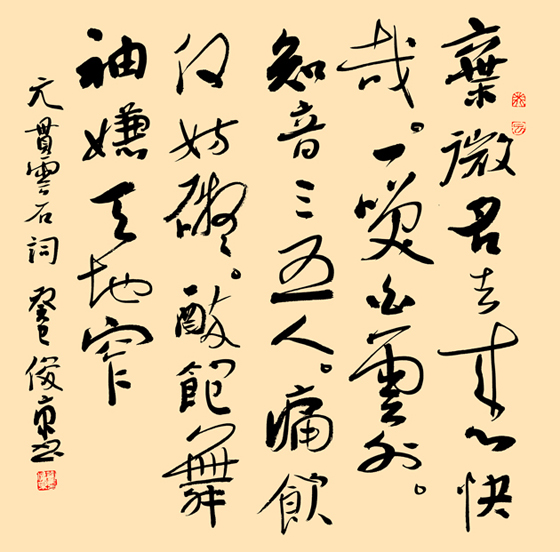 棄微名去来心快
哉。一笑白雲外。
知音三五人。痛飲
何妨礙。醉飽舞
袖嫌天地窄
元貫雲石詞 癸巳 俊